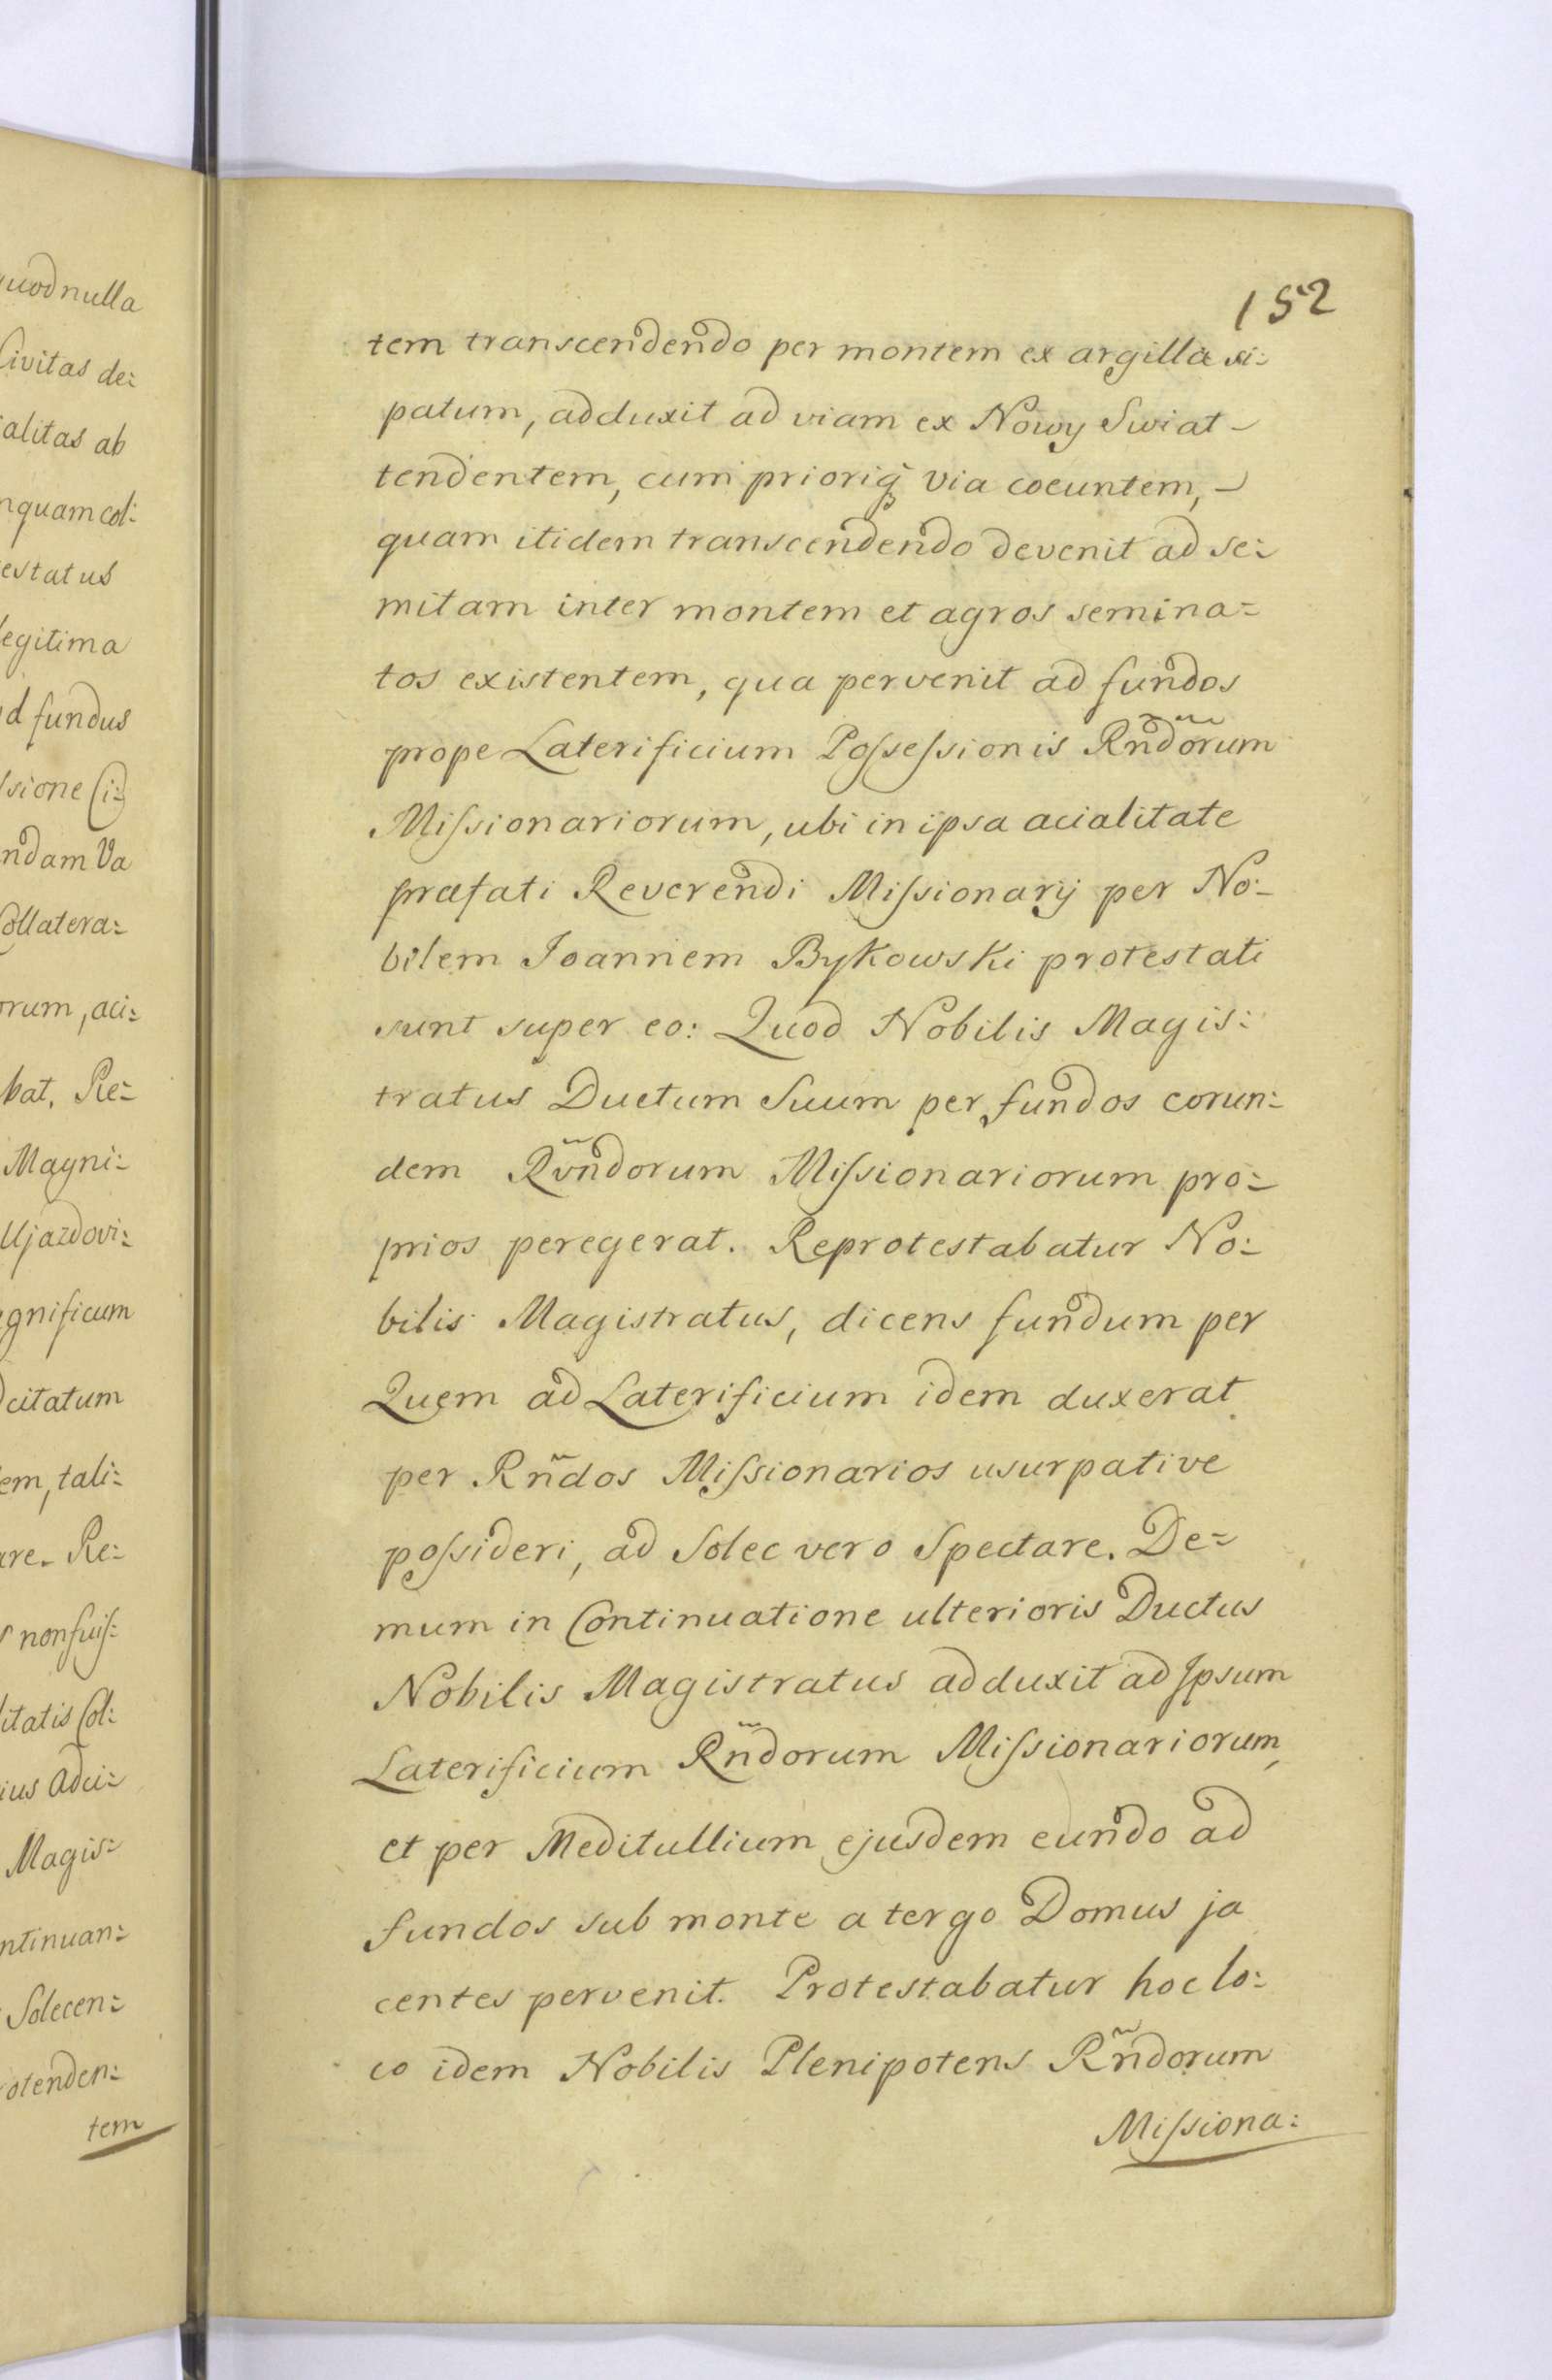 quod nulla
Civitas de:
ialitas ab
nquam col:
estatus
legitima
d fundus
ssione Ci:
ndam Va
Collatera:
orum, aci:
bat. Re:
Magni:
Ujazdovi:
agnificum
citatum
em, tali:
are. Re:
s non fuis:
litatis Col:
ius Adci:
Magis:
ntinuan:
Solecen:
otenden:
tem
152
tem transcendendo per montem ex argilla si:
patum, adduxit ad viam ex Nowy Swiat -
tendentem, cum prioriq̃ via coeuntem, -
quam itidem transcendendo devenit ad se:
mitam inter montem et agros semina=
tos existentem, qua pervenit ad fundos
prope Laterificium Poſseſsionis Rñdõrum
Miſsionariorum, ubi in ipsa acialitate
præfati Reverendi Miſsionarij per No:
bilem Joannem Bykowski protestati
sunt super eo: Quod Nobilis Magis:
tratus Ductum Suum per fundos eorun:
dem Rvñdorum Miſsionariorum pro:
prios peregerat. Reprotestabatur No:
bilis Magistratus, dicens fundum per
Quem ad Laterificium idem duxerat
per Rñdos Miſsionarios usurpative
poſsideri, ad Solec vero Spectare. De=
mum in Continuatione ulterioris Ductus
Nobilis Magistratus adduxit ad Ipsum
Laterificium Rñdorum Miſsionariorum,
et per Meditullium ejusdem eundo ad
fundos sub monte a tergo Domus ja
centes pervenit. Protestabatur hoc lo:
co idem Nobilis Plenipotens Rñdorum
Miſsiona: